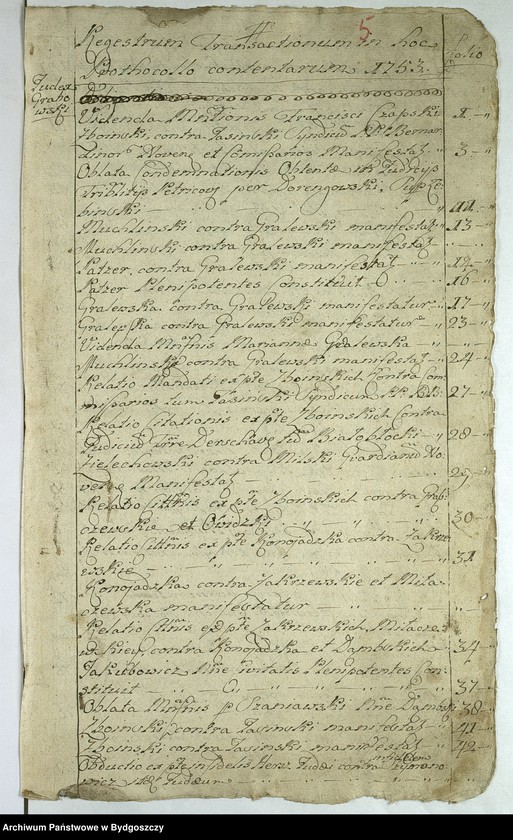 5
Regestrum Transactionum in hoc Folio
Prothocollo contentarum 1753.
Judex
Grabo
wski
Videnda Mttionis Francisci Czapski 1
Zboinski contra Jasinski Syndicum Bernar
dinor et Comissarios Manifestat 3
Oblata Condemnationis Obtentae in Judicijs
Petricov per Dorengowski
binwski 11
Muchlinski contra Gralewski manifestat 13
Muchlinski contra Gralewski manifestat
Patzer contra Gralewski manifestat 14
Patzer Plenipotentes Constituit 16
Gralewska contra Gralewski manifestatur 17
Gralewska contra Gralewski manifestatur 23
Videnda Mttnis Mariannae Gralewska
Muchlinski contra Gralewski manifestat 24
Relatio Mandati ex pte Zboinskich contra Com
missarios tum Jasinski Syndicum 27
Relatio Citationis ex pte Zboinskich contra
Judicium Bialoblocki 28
Zielechowski contra Milski Guardianum No
Manifestat 29
Relatio Cittnis ex pte Zboinskich contra Grabi
czewskie et 30
Relatio Cittnis ex pte Konojadzka contra Zakrze
wskie 31
Konojadzka contra Zakrzewskie et Mila
czewska manifestatur
Relatio Cittnis ex pte Zakrzewskich Milacze
wskiey contra Konojadzka et Dambskich 34
Jakubowicz Civitatis Plenipotentes Con
stituit 37
Oblata Mttnis Szaniawski Dambski 38
Zboinski contra Jasinski manifestat 41
Zboinski contra Jasinski manifestat 42
Obductio ex pte infidelis Judaei contra infidelem Szymano
wicz Judaeum
Archiwum Państwowe w Bydgoszczy
Archiwum Państwowe w Bydgoszczy